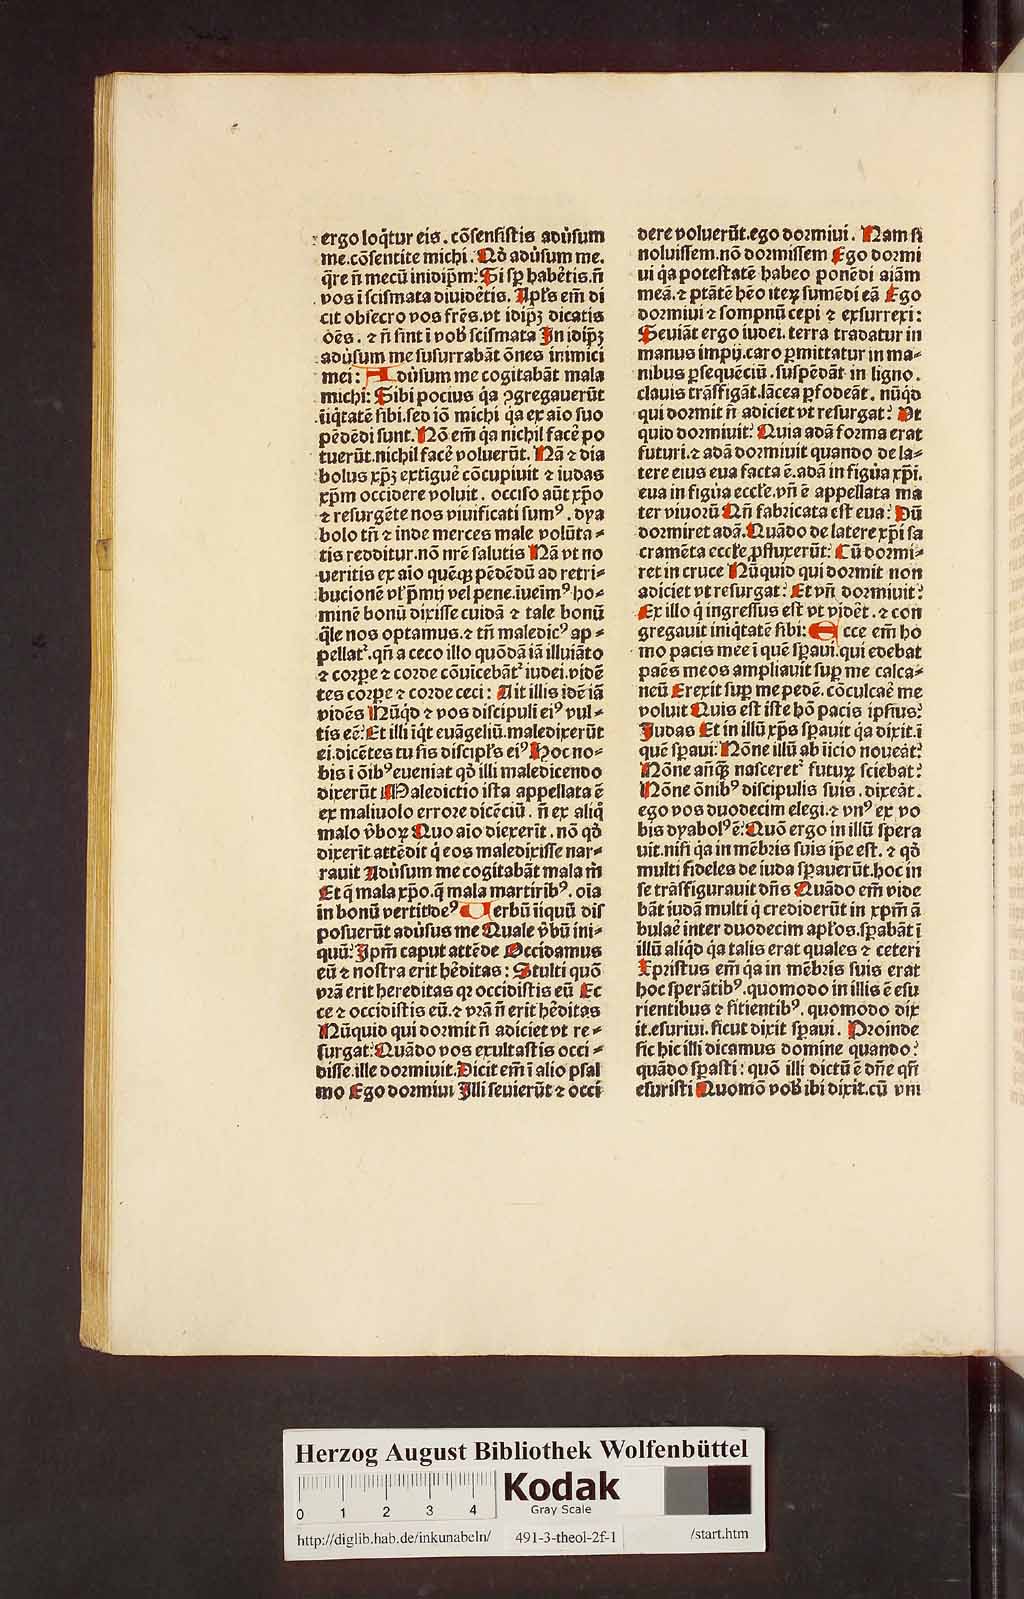 ergo loq̃tur eis. cõsensistis adũsum
me. cõsentite michi. Nõ adũsum me.
q̃re ñ mecũ inidip̃m: Si sp̱ habẽtis. ñ
vos ĩ scismata diuidẽtis. Apl̃s em̃ di
cit obsecro vos frẽs. vt idip̃ʒ dicatis
oẽs. ⁊ ñ sint ĩ vob̃ scismata In idip̃ʒ
adũsum me susurrabãt õnes inimici
mei: Adũsum me cogitabãt mala
michi: Sibi pocius q̃a ꝯgregauerũt
iniq̃tatẽ sibi. sed iõ michi q̃a ex aĩo suo
pẽdẽdi sunt. Nõ em̃ q̃a nichil facẽ po
tuerũt. nichil facẽ voluerũt. Nã ⁊ dia
bolus xp̃ʒ extĩguẽ cõcupiuit ⁊ iudas
xp̃m occidere voluit. occiso aũt xp̃o
⁊ resurgẽte nos viuificati sumꝰ. dya
bolo tñ ⁊ inde merces male volũta⸗
tis redditur. nõ nrẽ salutis Nã vt no
ueritis ex aĩo quẽqꝫ pẽdẽdũ ad retri⸗
bucionẽ vl̃ p̃mij vel pene. ĩueĩmꝰ ho⸗
minẽ bonũ dixisse cuidã ⁊ tale bonũ
q̃le nos optamus. ⁊ tñ maledicꝰ ap⸗
pellatꝛ. qñ a ceco illo quõdã iã illuĩato
⁊ corpe ⁊ corde cõuicebãtꝛ iudei. vidẽ
tes corpe ⁊ corde ceci: Ait illis idẽ iã
vidẽs Nũq̃d ⁊ vos discipuli eiꝰ vul⸗
tis eẽ: Et illi ĩq̃t euãgeliũ. maledixerũt
ei. dicẽtes tu sis discipl̃s eiꝰ Hoc no⸗
bis ĩ õibꝰ eueniat qð illi maledicendo
dixerũt Maledictio ista appellata ẽ
ex maliuolo errore dicẽciũ. ñ ex aliq̃
malo ṽboꝝ Quo aĩo dixerĩt. nõ qð
dixerĩt attẽdit q̃ eos maledixisse nar⸗
rauit Adũsum me cogitabãt mala m̃
Et q̃ mala xp̃o. q̃ mala martiribꝰ. oĩa
in bonũ vertit deꝰ Verbũ iniquũ dis
posuerũt adũsus me Quale ṽbũ ini⸗
quũ: Ip̃m caput attẽde Occidamus
eũ ⁊ nostra erit hẽditas: Stulti quõ
vrã erit hereditas qꝛ occidistis eũ Ec
ce ⁊ occidistis eũ. ⁊ vrã ñ erit hẽditas
Nũquid qui dormit ñ adiciet vt re⸗
surgat: Quãdo vos exultastis occi⸗
disse. ille dormiuit. Dicit em̃ ĩ alio psal
mo Ego dormiui Illi seuierũt ⁊ occi
dere voluerũt. ego dormiui. Nam si
noluissem. nõ dormissem Ego dormi
ui q̃a potestatẽ habeo ponẽdi aĩam
meã. ⁊ ptãtẽ hẽo iteꝝ sumẽdi eã Ego
dormiui ⁊ sompnũ cepi ⁊ exsurrexi:
Seuiãt ergo iudei. terra tradatur in
manus impij. caro ꝑmittatur in ma⸗
nibus ꝑsequẽciũ. suspẽdãt in ligno.
clauis trãsfigãt. lãcea ꝑfodeãt. nũq̃d
qui dormit ñ adiciet vt resurgat: Vt
quid dormiuit: Quia adã forma erat
futuri. ⁊ adã dormiuit quando de la⸗
tere eius eua facta ẽ. adã in figũa xp̃i.
eua in figũa eccl̃e. vñ ẽ appellata ma
ter viuorũ Qñ fabricata est eua: Dũ
dormiret adã. Quãdo de latere xp̃i sa
cramẽta eccl̃e ꝓfluxerũt: Cũ dormi⸗
ret in cruce Nũquid qui dormit non
adiciet vt resurgat: Et vñ dormiuit:
Ex illo q̃ ingressus est vt vidẽt. ⁊ con
gregauit iniq̃tatẽ sibi: Ecce em̃ ho
mo pacis mee ĩ quẽ sp̱aui. qui edebat
paẽs meos ampliauit sup̱ me calca⸗
neũ Erexit sup̱ me pedẽ. cõculcaẽ me
voluit Quis est iste hõ pacis ipsius:
Iudas Et in illũ xp̃s sp̱auit q̃a dixit. ĩ
quẽ sp̱aui: Nõne illũ ab ĩicio noueãt:
Nõne añqꝫ nasceretꝛ futuꝝ sciebat:
Nõne õnibꝰ discipulis suis. dixeãt.
ego vos duodecim elegi. ⁊ vnꝰ ex vo
bis dyabolꝰ ẽ: Quõ ergo in illũ spera
uit. nisi q̃a in mẽbris suis ip̃e est. ⁊ qð
multi fideles de iuda sp̱auerũt. hoc in
se trãsfigurauit dñs Quãdo em̃ vide
bãt iudã multi q̃ crediderũt in xp̃m ã
bulaẽ inter duodecim apl̃os. sp̱abãt ĩ
illũ aliq̃d q̃a talis erat quales ⁊ ceteri
Xpristus em̃ q̃a in mẽbris suis erat
hoc sperãtibꝰ. quomodo in illis ẽ esu
rientibus ⁊ sitientibꝰ. quomodo dix
it. esuriui. sicut dixit sp̱aui. Proinde
sic hic illi dicamus domine quando:
quãdo sp̱asti: quõ illi dictũ ẽ dñe qñ
esuristi Quomõ vob̃ ibi dixit. cũ vni
Herzog August Bibliothek Wolfenbüttel
Kodak
Gray Scale
0 1 2 3 4
http://diglib.hab.de/inkunabeln/ 491-3-theol-2f-1 /start.htm